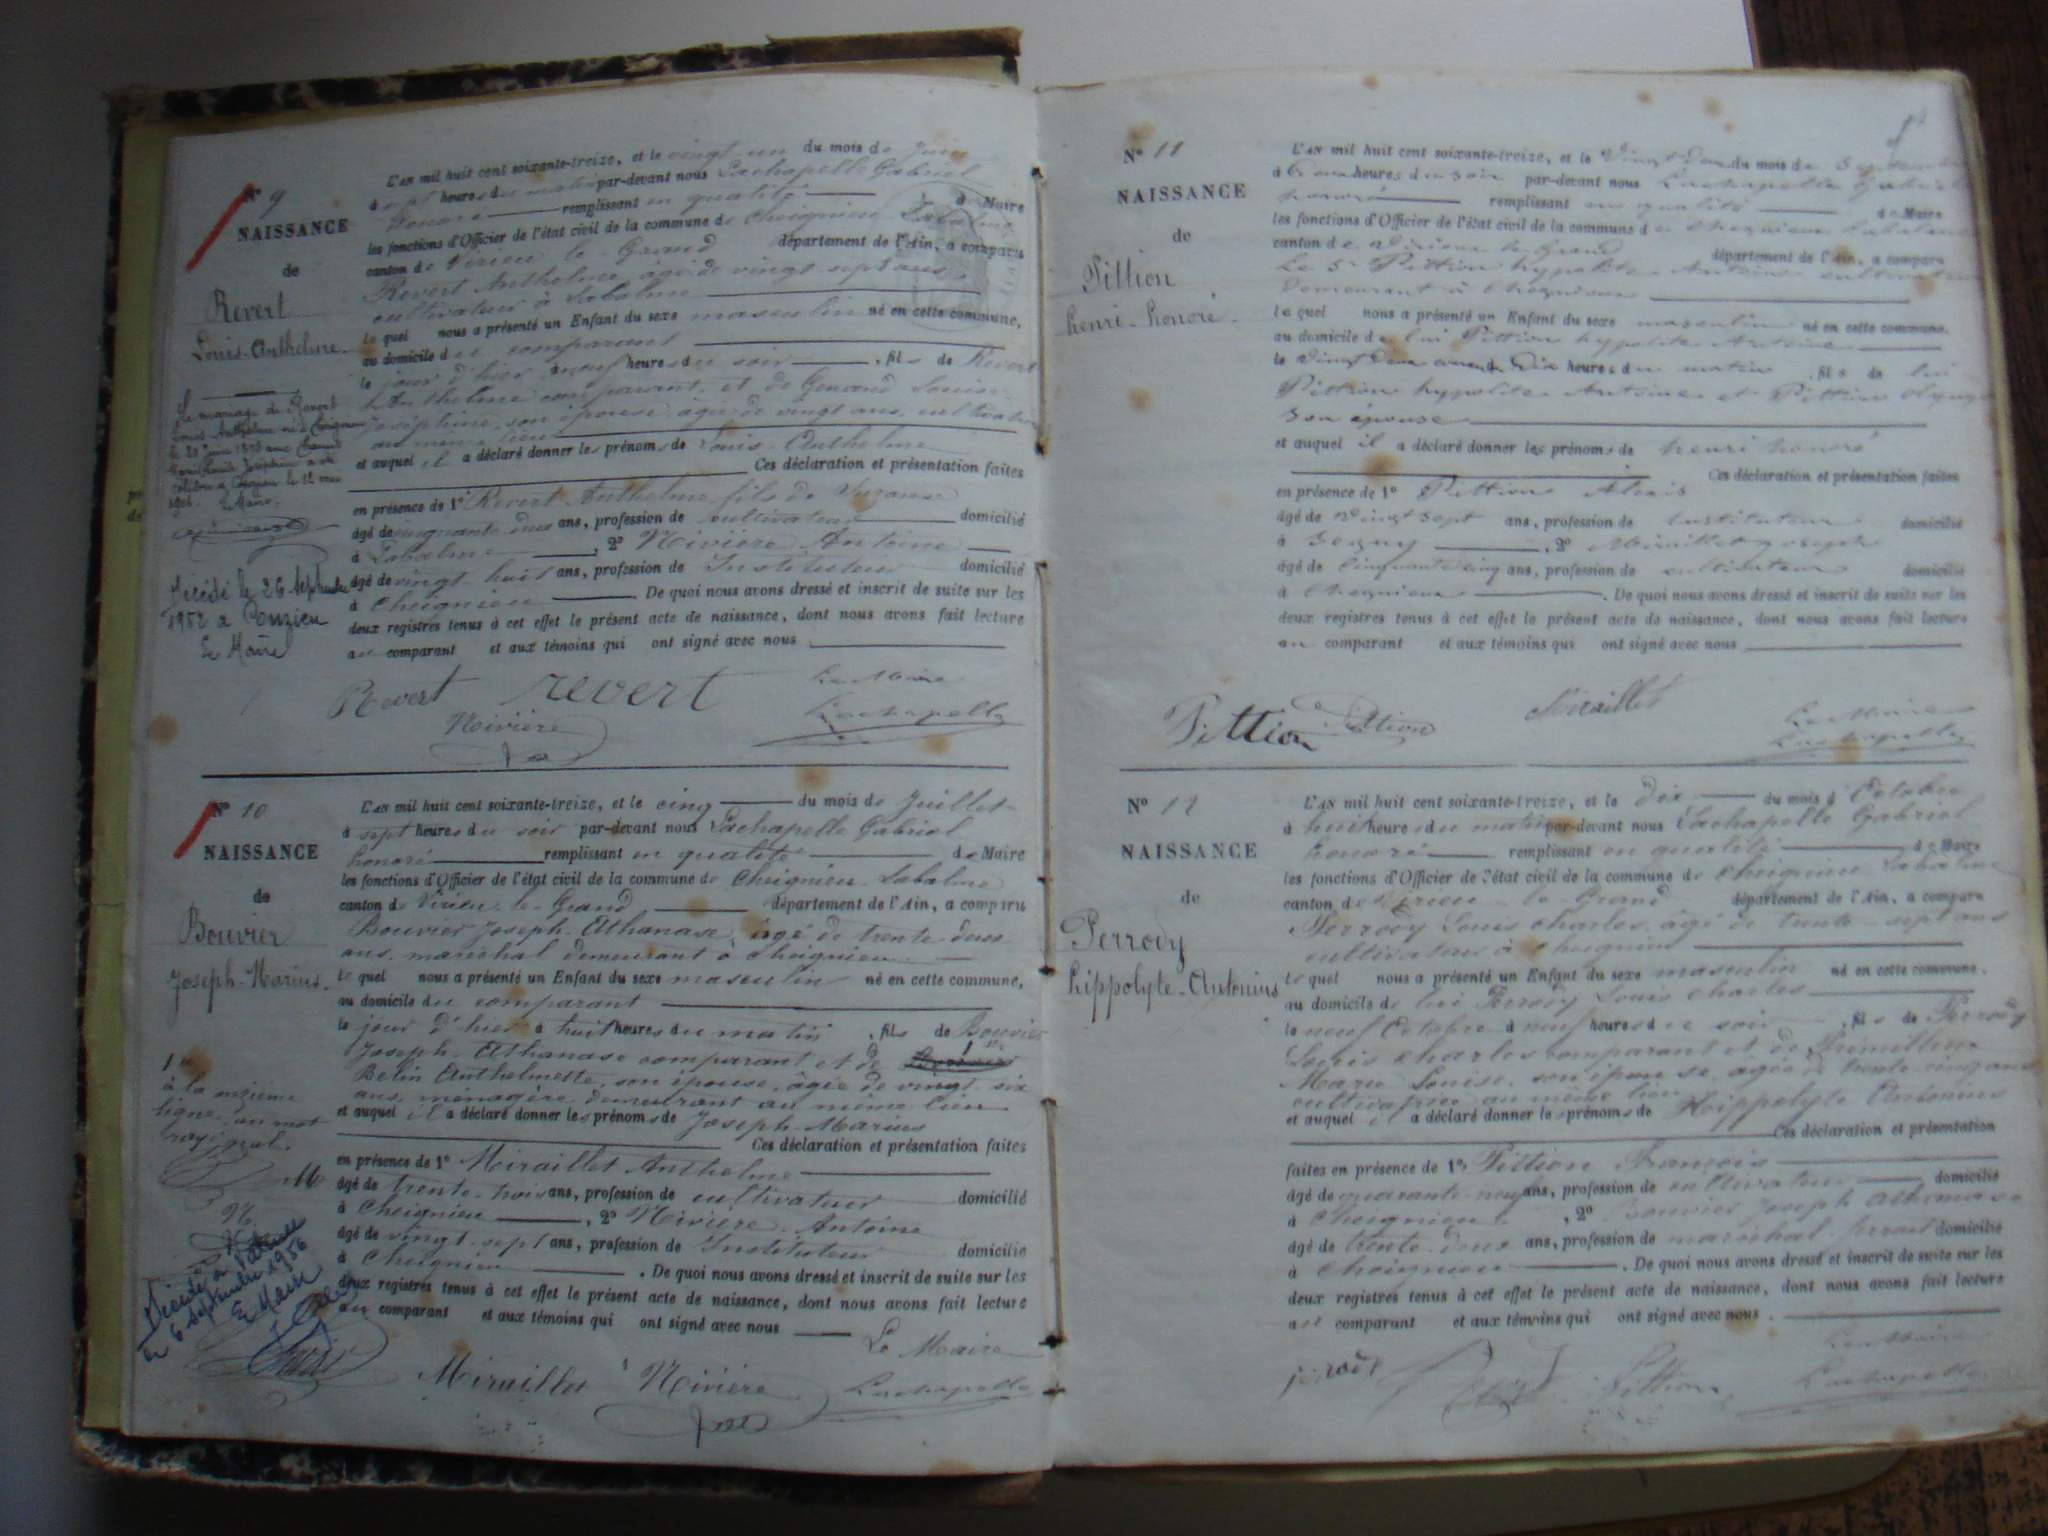 N° 9
NAISSANCE
de
Revert
Louis-Anthelme.
Le mariage de Revert
Louis-Anthelme né à Cheignieu
le 20 juin 1873 avec
célébré à le 12 mai
1906. Le Maire,
Décédé le 26 Septembre
1952 à Conzieu
Le Maire
L'AN mil huit cent soixante-treize, et le vingt un du mois de Juin
à sept heures du matin par-devant nous Lachapelle Gabriel
honoré remplissant en qualité de Maire
les fonctions d'Officier de l'état civil de la commune de Cheignieu Labalme
canton de Virieu le Grand département de l'Ain, a comparu
Revert Anthelme, âgé de vingt sept ans,
cultivateur à Labalme
lequel nous a présenté un Enfant du sexe masculin né en cette commune,
au domicile du comparant
le jour d'hier à neuf heures du soir, fils de Revert
Anthelme comparant et de Louise
Joséphine, son épouse âgée de vingt ans, cultivatrice
au même lieu
et auquel il a déclaré donner les prénoms de Louis-Anthelme
Ces déclaration et présentation faites
en présence de 1° Revert Anthelme fils de Suzanne
âgé de cinquante deux ans, profession de cultivateur domicilié
à Labalme, 2° Nivière Antoine
âgé de vingt huit ans, profession de Instituteur domicilié
à Cheignieu. De quoi nous avons dressé et inscrit de suite sur les
deux registres tenus à cet effet le présent acte de naissance, dont nous avons fait lecture
au comparant et aux témoins qui ont signé avec nous
Revert revert Le Maire
Nivière Lachapelle
N° 10
NAISSANCE
de
Bouvier
Joseph-Marius.
1
à la onzième
ligne un mot
rayé nul.
M
N.
Décédé à
le 6 septembre 1956
Le Maire
L'AN mil huit cent soixante-treize, et le cinq du mois de Juillet
à sept heures du soir par-devant nous Lachapelle Gabriel
honoré remplissant en qualité de Maire
les fonctions d'Officier de l'état civil de la commune de Cheignieu-Labalme
canton de Virieu-le-Grand département de l'Ain, a comparu
Bouvier Joseph-Athanase, âgé de trente deux
ans, maréchal demeurant à Cheignieu
lequel nous a présenté un Enfant du sexe masculin né en cette commune,
au domicile du comparant
le jour d'hier à huit heures du matin, fils de Bouvier
Joseph-Athanase comparant et de
Belin Anthelmette, son épouse, âgée de vingt-six
ans, ménagère demeurant au même lieu
et auquel il a déclaré donner les prénoms de Joseph-Marius
Ces déclaration et présentation faites
en présence de 1° Miraillet Anthelme
âgé de trente-trois ans, profession de cultivateur domicilié
à Cheignieu, 2° Nivière Antoine
âgé de vingt-sept ans, profession de Instituteur domicilié
à Cheignieu. De quoi nous avons dressé et inscrit de suite sur les
deux registres tenus à cet effet le présent acte de naissance, dont nous avons fait lecture
au comparant et aux témoins qui ont signé avec nous
Le Maire
Miraillet Nivière Lachapelle
N° 11
NAISSANCE
de
Pittion
henri-honoré.
L'AN mil huit cent soixante-treize, et le Vingt Deux du mois de Septembre
à heures du soir par-devant nous Lachapelle Gabriel
honoré remplissant en qualité de Maire
les fonctions d'Officier de l'état civil de la commune de Cheignieu Labalme
canton de Virieu le Grand département de l'Ain, a comparu
Le Sr Pittion hypolite Antoine cultivateur
demeurant à Cheignieu
lequel nous a présenté un Enfant du sexe masculin né en cette commune,
au domicile de lui Pittion hypolite Antoine
le Vingt Deux courant à Dix heures du matin, fils de lui
Pittion hypolite Antoine et Pittion
son épouse
et auquel il a déclaré donner les prénoms de henri honoré
Ces déclaration et présentation faites
en présence de 1° Pittion Alexis
âgé de Vingt Sept ans, profession de Instituteur domicilié
à Segny, 2° Miraillet joseph
âgé de Cinquante Cinq ans, profession de cultivateur domicilié
à Cheignieu. De quoi nous avons dressé et inscrit de suite sur les
deux registres tenus à cet effet le présent acte de naissance, dont nous avons fait lecture
au comparant et aux témoins qui ont signé avec nous
Pittion Pittion Miraillet Le Maire
Lachapelle
N° 12
NAISSANCE
de
Perrody
hippolyte-Antonius
L'AN mil huit cent soixante-treize, et le Dix du mois d'Octobre
à huit heures du matin par-devant nous Lachapelle Gabriel
honoré remplissant en qualité de Maire
les fonctions d'Officier de l'état civil de la commune de Cheignieu Labalme
canton de Virieu-le-Grand département de l'Ain, a comparu
Perrody Louis charles, âgé de trente-sept ans
cultivateur à Cheignieu
lequel nous a présenté un Enfant du sexe masculin né en cette commune,
au domicile de lui Perrody Louis charles
le neuf Octobre à neuf heures du soir, fils de Perrody
Louis charles comparant et de Prémillieu
Marie Louise, son épouse, âgée de trente-cinq ans
cultivatrice au même lieu
et auquel il a déclaré donner les prénoms de Hippolyte Antonius
Ces déclaration et présentation
faites en présence de 1° Pittion François
âgé de quarante-neuf ans, profession de cultivateur domicilié
à Cheignieu, 2° Bouvier Joseph Athanase
âgé de trente-deux ans, profession de maréchal-ferrant domicilié
à Cheignieu. De quoi nous avons dressé et inscrit de suite sur les
deux registres tenus à cet effet le présent acte de naissance, dont nous avons fait lecture
au comparant et aux témoins qui ont signé avec nous.
Le Maire
Pittion Lachapelle